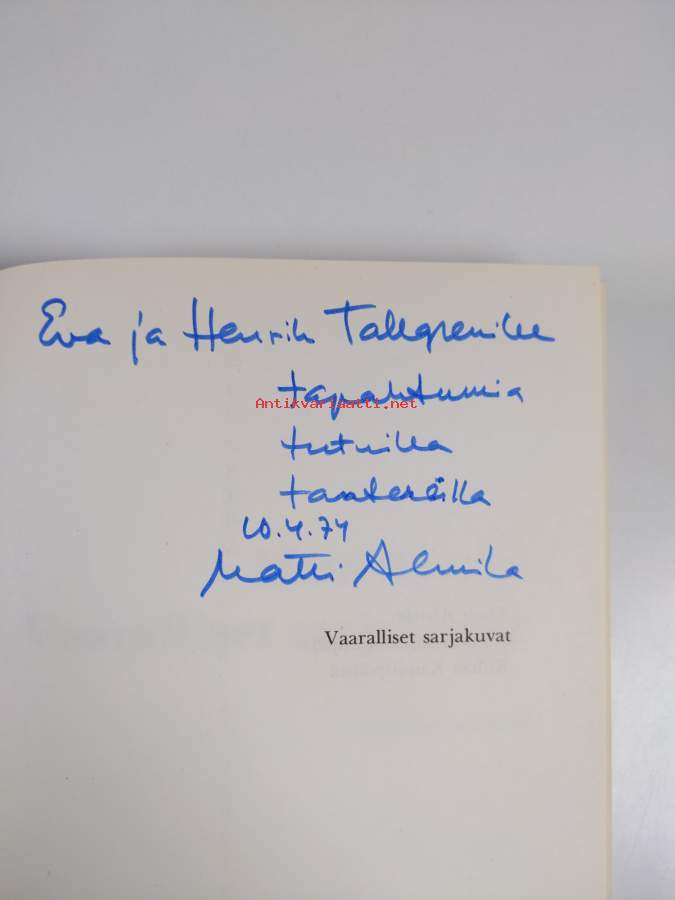 Eva ja Henrik Tallgrenille
tapahtumia
Antikvariaatti.net
tutuilla
tantereilla
10.4.74
Matti Almila
Vaaralliset sarjakuvat